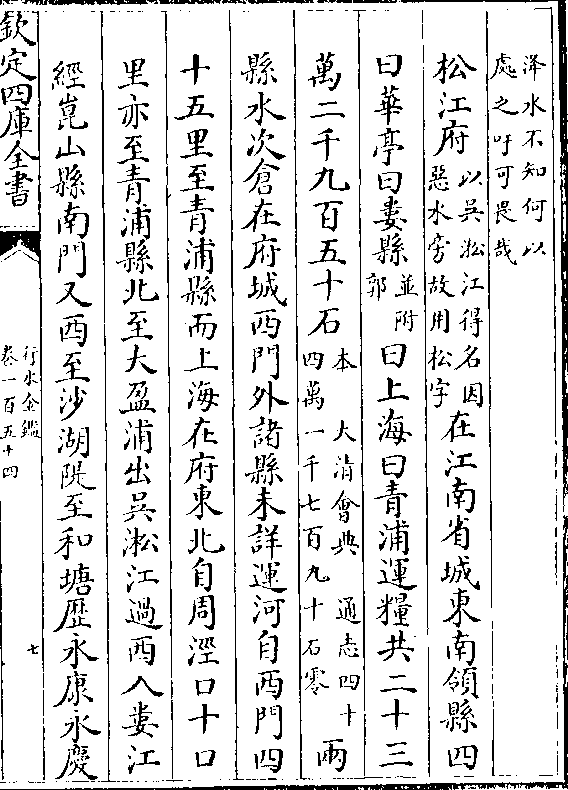 洚水不知何以
處之吁可畏哉
松江府以吳淞江得名因
惡水旁故用松字
在江南省城東南領縣四
曰華亭曰婁縣並附
郭
曰上海曰青浦運糧共二十三
萬二千九百五十石本 大清會典 通志四十
四萬一千七百九十石零
兩
縣水次倉在府城西門外諸縣未詳運河自西門四
十五里至青浦縣而上海在府東北自周涇口十口
里亦至青浦縣北至大盈浦出吳淞江過西入婁江
經崑山縣南門又西至沙湖隄至和塘歷永康永慶
欽定四庫全書
行水金鑑
卷一百五十四
七